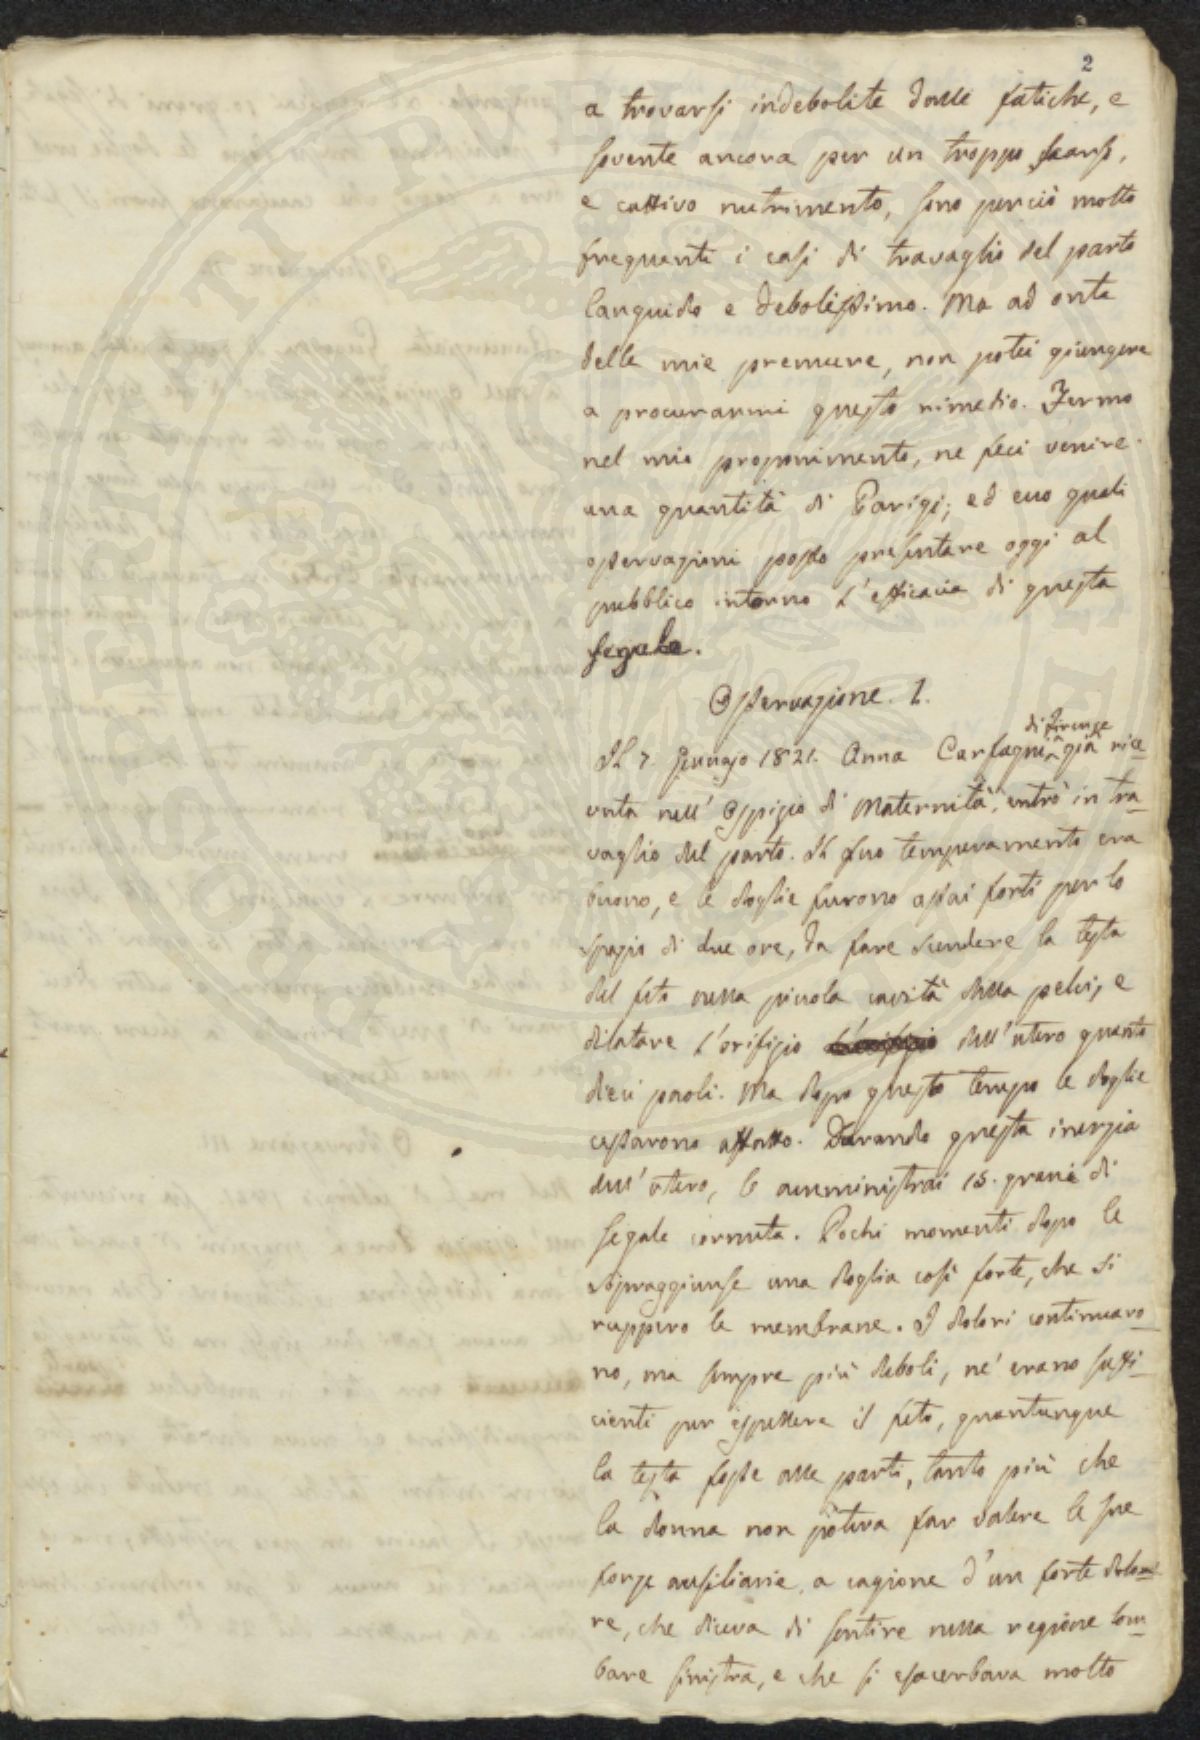 2
a trovarsi indebolite dalle fatiche, e
sovente ancora per un troppo scarso,
e cattivo nutrimento, sono perciò molto
frequenti i casi di travaglio del parto
languido e debolissimo. Ma ad onta
delle mie premure, non potei giungere
a procurarmi questo rimedio. Fermo
nel mio proponimento, ne feci venire
una quantità di Parigi; ed ecco quali
osservazioni posso presentare oggi al
pubblico intorno l'efficacia di questa
segale.
Osservazione. 1.
di Firenze
Il 7. Gennajo 1821. Anna Carfagni già rice-
vuta nell' Ospizio di Maternità, entrò in tra-
vaglio del parto. Il suo temperamento era
buono, e le doglie furono assai forti per lo
spazio di due ore, da fare scendere la testa
del feto nella piccola cavità della pelvi, e
dilatare l'orifizio l'orifizio dell'utero quanto
dieci paoli. Ma dopo questo tempo le doglie
cessarono affatto. Durando questa inerzia
dell'utero, le amministrai 15. grani di
segale cornuta. Pochi momenti dopo le
sopraggiunse una doglia così forte, che si
ruppero le membrane. I dolori continuaro-
no, ma sempre più deboli, nè erano suffi-
cienti per espellere il feto, quantunque
la testa fosse alle parti, tanto più che
la donna non poteva far valere le sue
forze ausiliarie, a cagione d'un forte dolo-
re, che diceva di sentire nella regione lom-
bare sinistra, e che si esacerbava molto